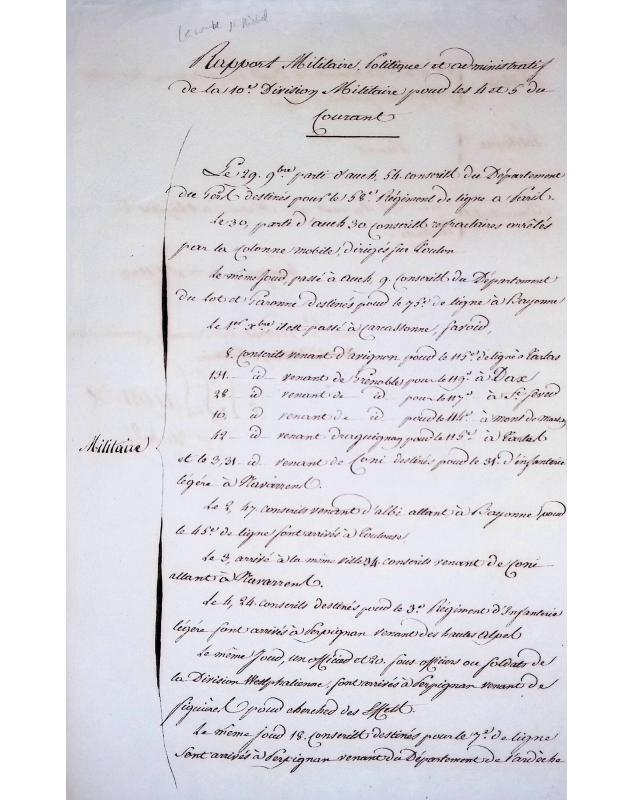 Rapport Militaire, Politique et administratif
de la 10e. Division Militaire pour les 4 et 5 du
Courant
Le 29. 9bre parti d'auch, 54. conscrits du Département
du Gers destinés pour le 58e. Régiment de ligne à Paris.
Le 30, parti d'auch 30 conscrits refractaires arrêtés
par la Colonne mobile, dirigés sur Toulon
Le même Jour, passé à auch, 9. Conscrits du Département
du Lot et Garonne destinés pour le 75e. de ligne à Bayonne
Le 1er Xbre, il est passé à Carcassonne, Savoir,
8. Conscrits venant d'avignon pour le 115e. de ligne à Tartas
131 _ id _ venant de Grenoble pour le 119e. à Dax
28 _ id _ venant de _ id _ pour le 117e. à St. Sever
10 _ id _ venant de _ id _ pour le 114e. à mont de marsan
42 _ id _ venant Draguignan pour le 115e. à Tartas
et le 3, 31 _ id _ venant de Coni destinés pour le 31e. d'infanterie
légère à Navarrens.
Militaire
Le 2, 47 conscrits venant d'albi allant à Bayonne pour
le 45e. de ligne sont arrivés à Toulouse
Le 3, arrivé à la même ville 34 conscrits venant de Coni
allant à Navarrens.
Le 4, 24 conscrits destinés pour le 3e. Régiment d'Infanterie
légère sont arrivés à Perpignan venant des hautes alpes
Le même Jour, un officier et 20. sous officiers ou soldats de
la Division Westphalienne, sont arrivés à Perpignan venant de
figuieres pour chercher des Effets.
Le même Jour 18. Conscrits destinés pour le 7e. de ligne
sont arrivés à Perpignan venant du Département de l'ardèche